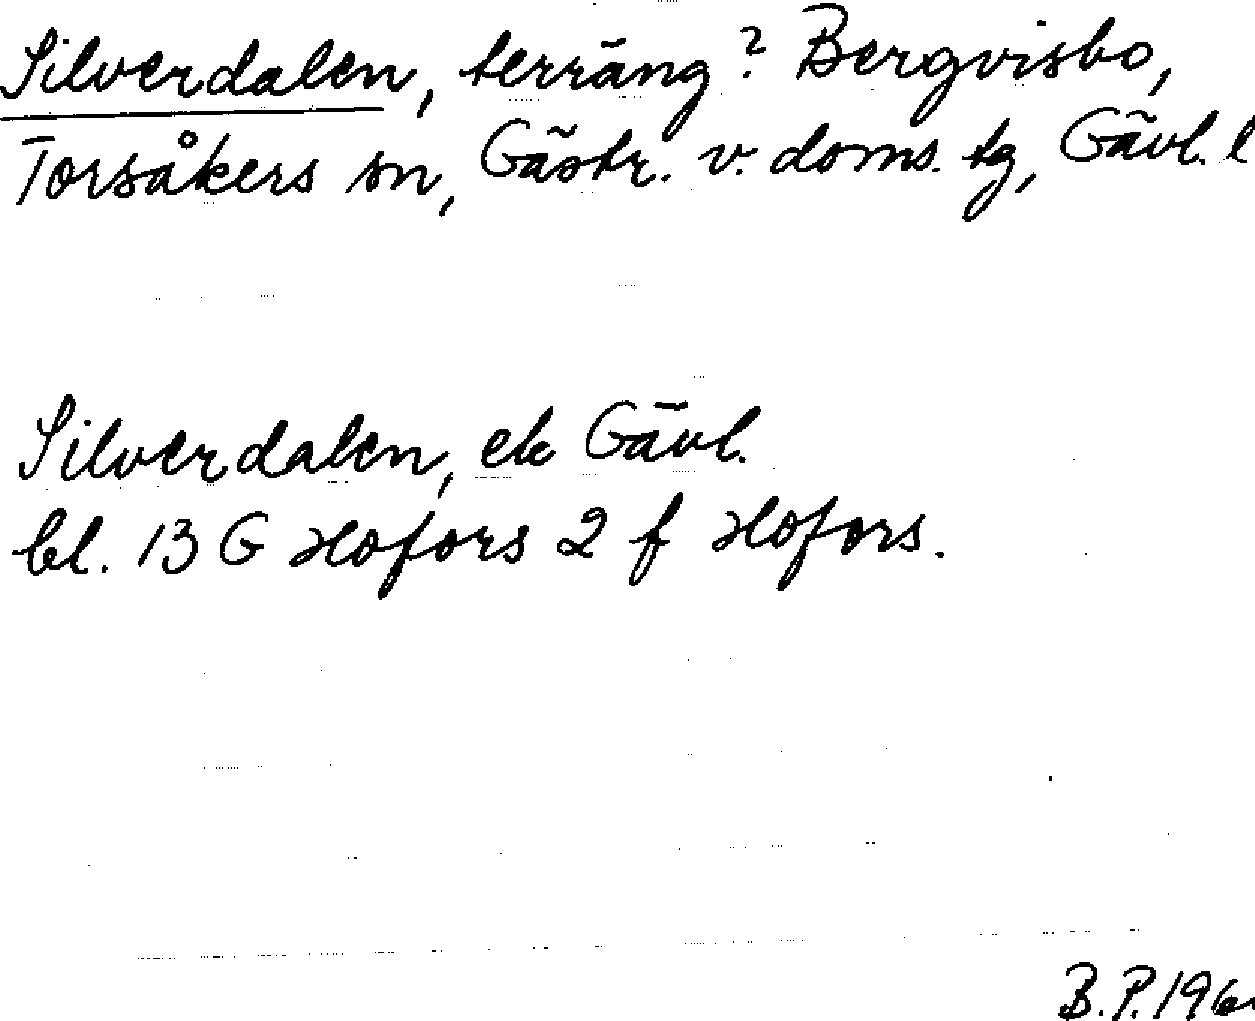 Silverdalen, terräng? Bergvisbo,
Torsåkers sn, Gästr. v. doms. tg, Gävl. l
Silverdalen, ek Gävl.
bl. 13 G Hofors 2 f Hofors.
B.P. 196